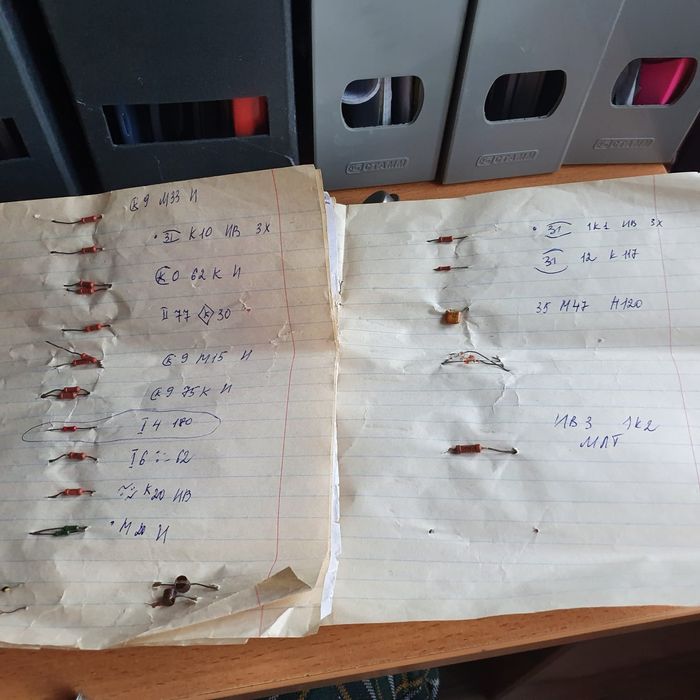 СТАММ
СТАММ
СТАММ
К9 М33 И
• 31 К10 ИВ 3Х
К0 62К И
II 77 К 30
К9 М15 И
К9 75К И
I 4 180
I 6 62
К20 ИВ
• М20 И
• 31 1К1 ИВ 3Х
31 12 К 117
35 М47 Н120
ИВ3 1К2
МЛТ